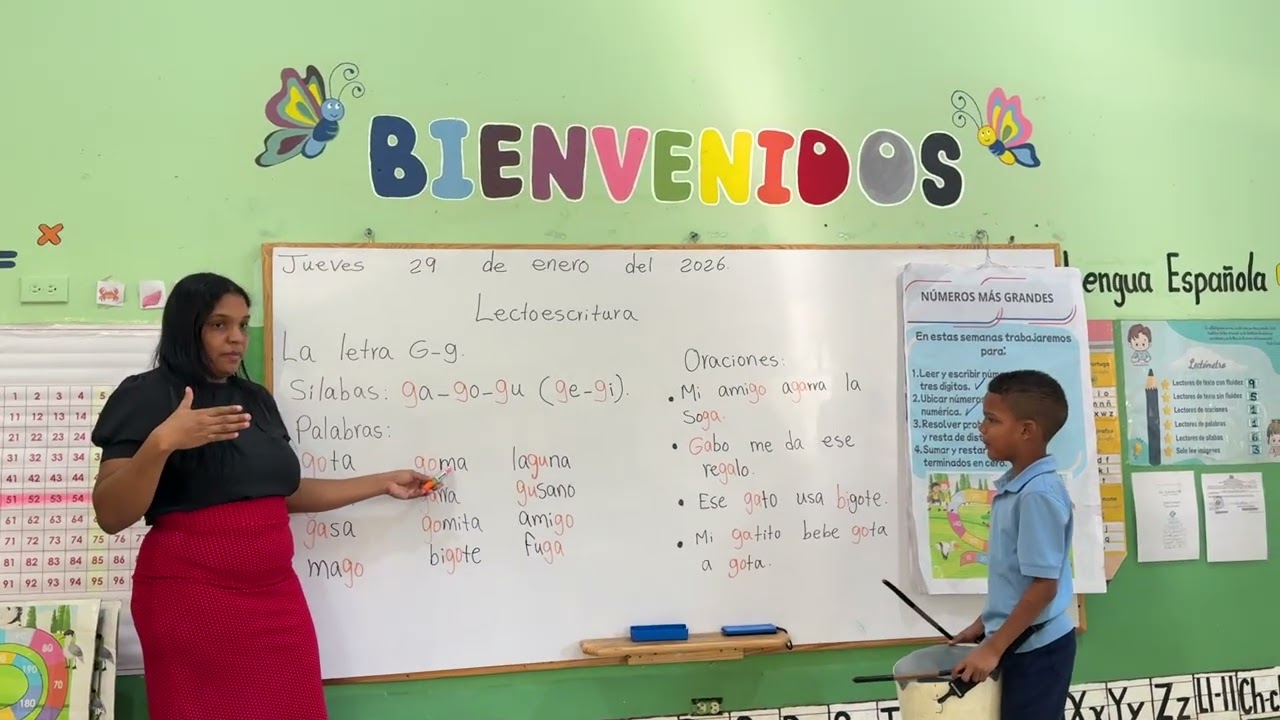 BIENVENIDOS
Jueves 29 de enero del 2026.
Lectoescritura
La letra G-g.
Sílabas: ga-go-gu (ge-gi).
Palabras:
gota goma laguna
gusano
gasa gomita amigo
mago bigote fuga
Oraciones:
• Mi amigo agarra la
soga.
• Gabo me da ese
regalo.
• Ese gato usa bigote.
• Mi gatito bebe gota
a gota.
NÚMEROS MÁS GRANDES
En estas semanas trabajaremos
para:
1. Leer y escribir
tres dígitos.
2. Ubicar
numérica.
3. Resolver
y resta de
4. Sumar y restar
terminados en cero.
Lengua Española
Lectómetro
Lectores de texto con fluidez 9
Lectores de texto sin fluidez 5
Lectores de oraciones 1
Lectores de palabras 1
Lectores de sílabas 6
Solo lee imágenes 3
1 2 3 4 5
11 12 13 14
21 22 23 24
31 32 33 34
41 42 43 44
51 52 53 54
61 62 63 64
71 72 73 74 75 76
81 82 83 84 85 86
91 92 93 94 95 96
Xx Yy Zz Ll-ll Ch-ch